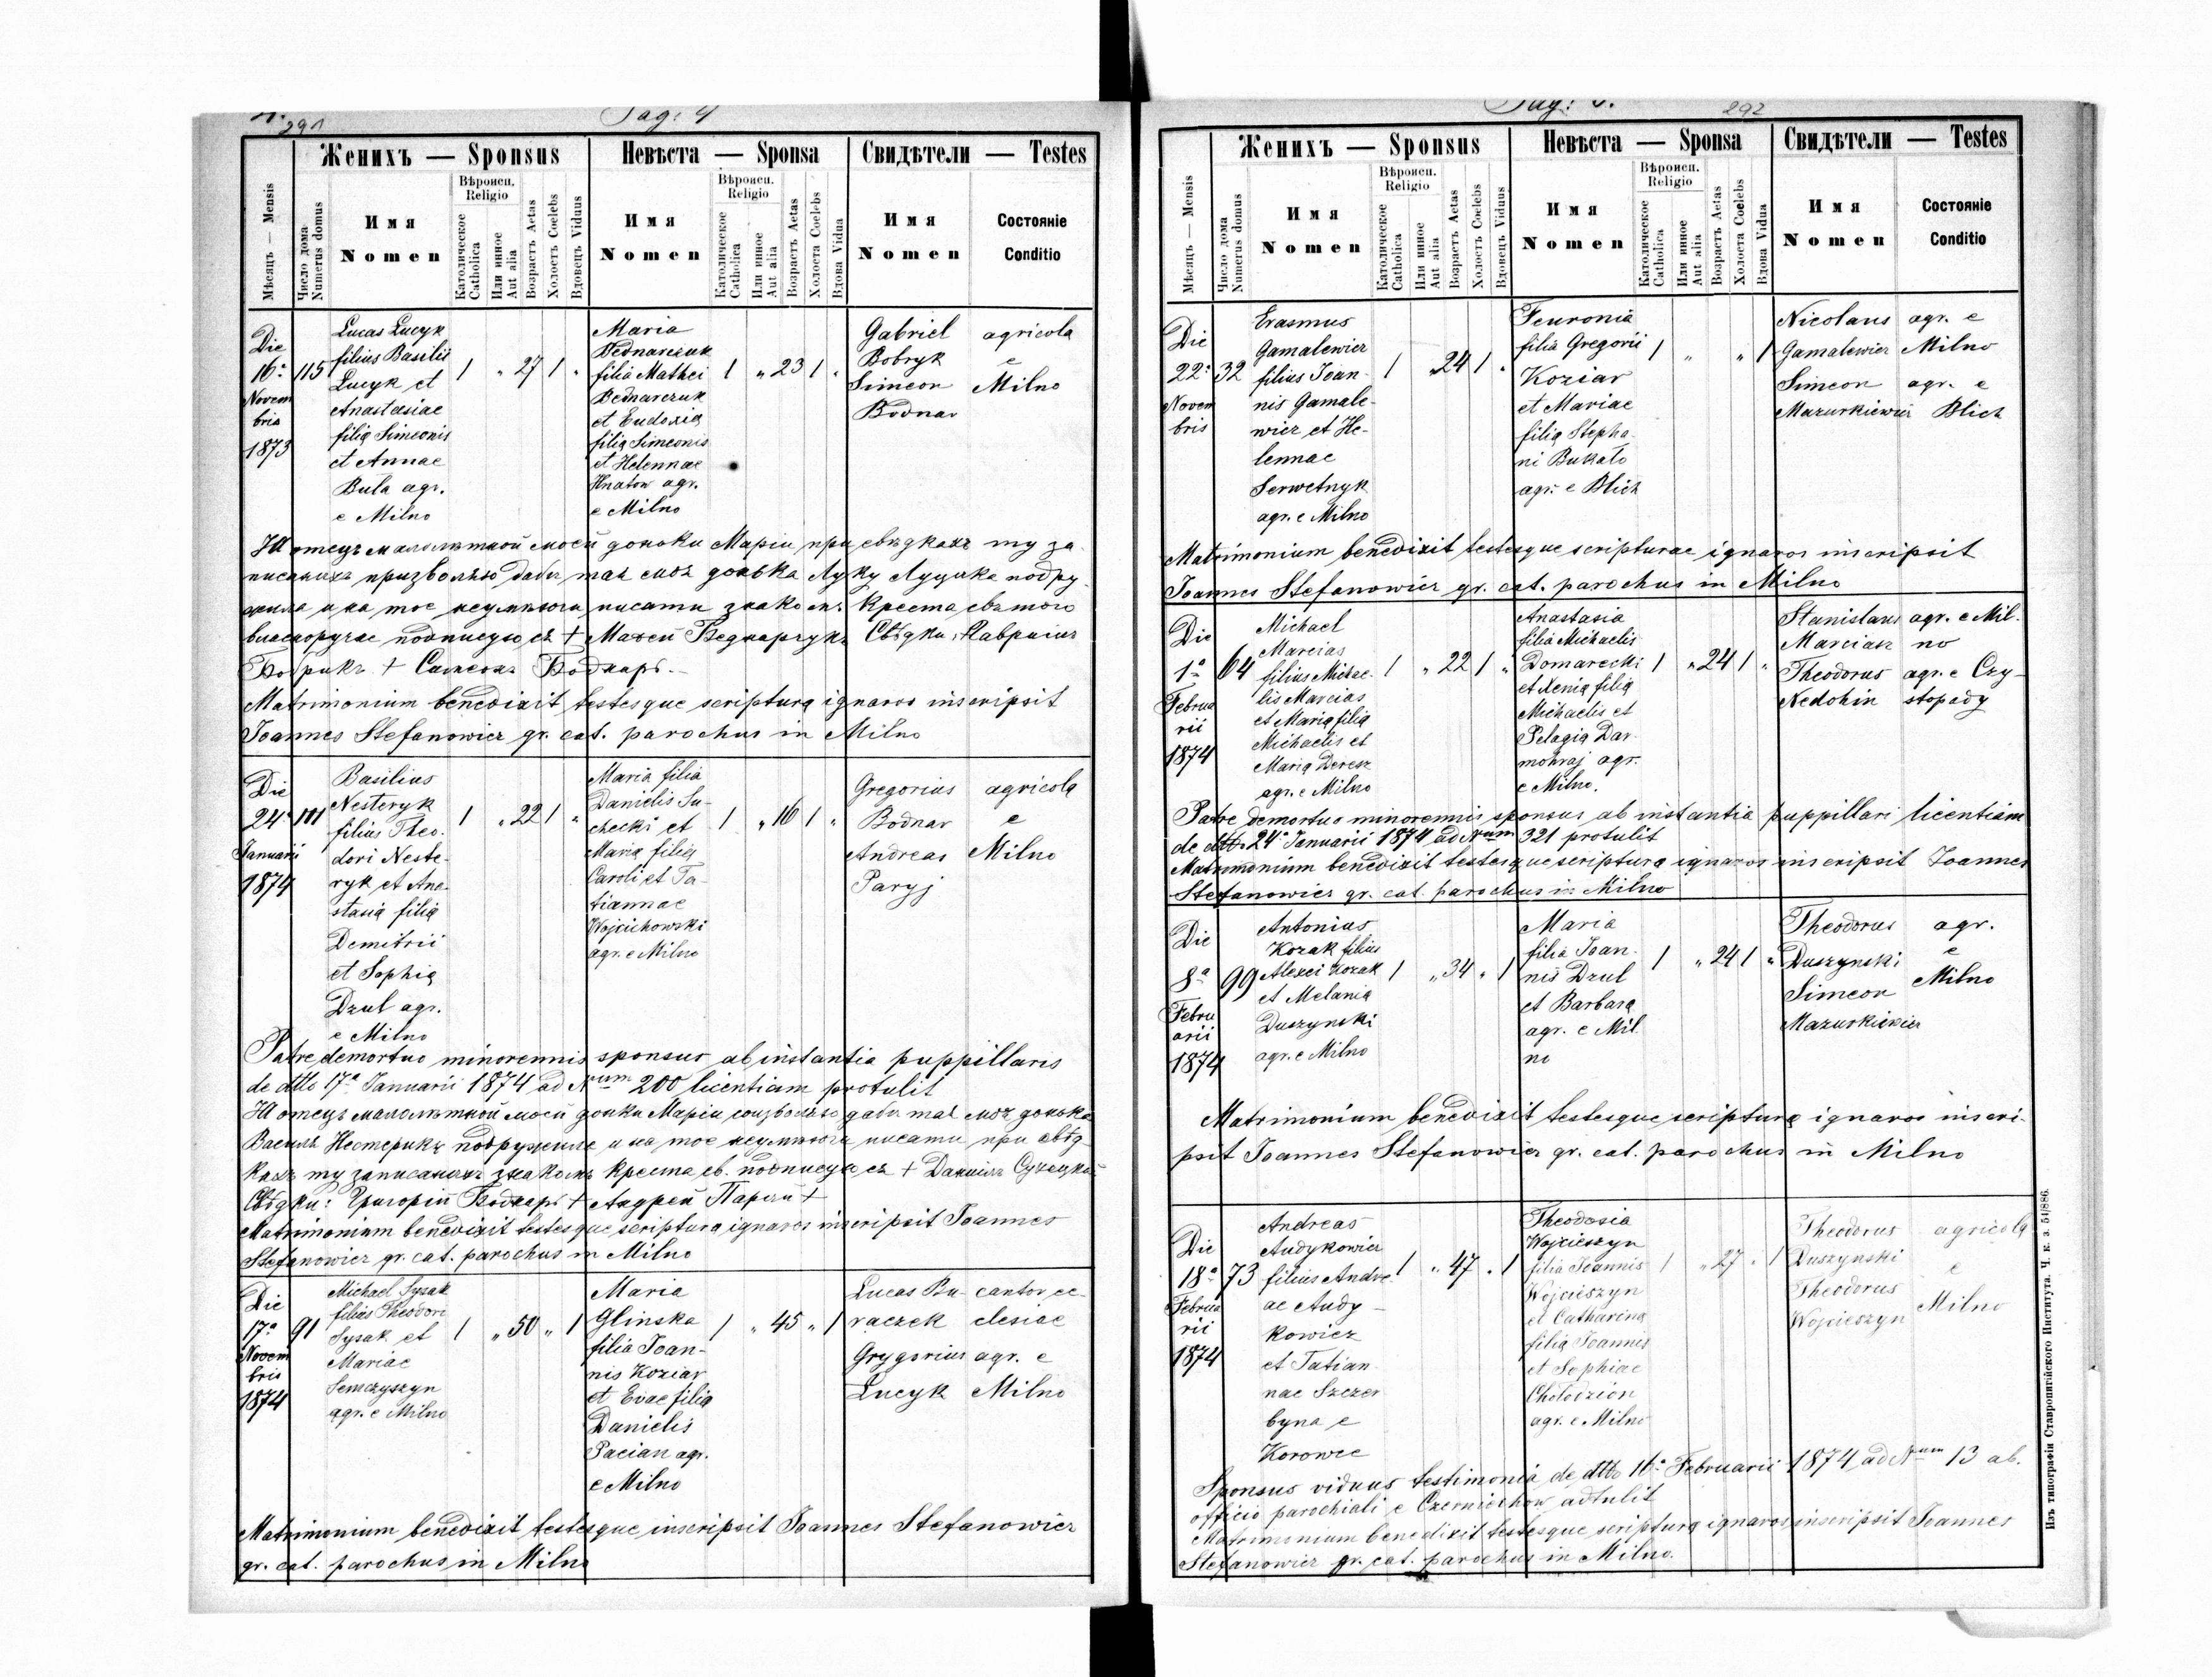 291
Pag: 4
Женихъ — Sponsus
Невѣста — Sponsa
Свидѣтели — Testes
Мѣсяцъ — Mensis
Число дома
Numerus domus
Имя
Nomen
Вѣроисп.
Religio
Католическое
Catholica
Или инное
Aut alia
Возрастъ Aetas
Холостъ Coelebs
Вдовецъ Viduus
Имя
Nomen
Вѣроисп.
Religio
Католическое
Catholica
Или инное
Aut alia
Возрастъ Aetas
Холоста Coelebs
Вдова Vidua
Имя
Nomen
Состояніе
Conditio
Die
16a
Novem
bris
1873
115
Lucas Lucyk
filius Basilii
Lucyk et
Anastasiae
filia Simeonis
et Annae
Buła agr.
e Milno
1 " 27 1 "
Maria
Bednarczuk
filia Mathei
Bednarczuk
et Eudoxia
filia Simeonis
et Helennae
Hnatow agr.
e Milno
1 " 23 1 "
Gabriel
Bobryk
Simeon
Bodnar
agricola
e
Milno
Я отець малолѣтной моеи доньки Маріи при свѣдкахъ ту за-
писаныхъ призволяю дабы тая моя донька Луку Луцика подру-
жила а на тое неумѣючи писати знакомъ Креста святого
власноручне подписуюся + Матей Беднарчукъ Свѣдки: Гавриилъ
Бобрикъ + Симеонъ Боднаръ
Matrimonium benedixit testesque scriptura ignaros inscripsit
Joannes Stefanowicz gr. cat. parochus in Milno
Die
24a
Januarii
1874
111
Basilius
Nesteryk
filius Theo-
dori Neste-
ryk et Ana-
stasia filia
Demitrii
et Sophia
Dzul agr.
e Milno
1 " 22 1 "
Maria filia
Danielis Su-
checki et
Maria filia
Caroli et Ta-
tiannae
Wojcichowski
agr. e Milno
1 " 16 1 "
Gregorius
Bodnar
Andreas
Paryj
agricola
e
Milno
Patre demortuo minorennis sponsus ab instantia puppillaris
de dtto 17a Januarii 1874 ad Nrum 200 licentiam protulit
Я отець малолѣтной моеи доньки Маріи соизволяю дабы тая моя донька
Василя Нестерика подружила а на тое неумѣючи писати при свѣд-
кахъ ту записаныхъ знакомъ Креста св. подписуюся + Данiилъ Сухецкій
Свѣдки: Григорій Боднаръ + Андрей Парый +
Matrimonium benedixit testesque scriptura ignaros inscripsit Joannes
Stefanowicz gr. cat. parochus in Milno
Die
17a
Novem
bris
1874
91
Michael Sysak
filius Theodori
Sysak et
Mariae
Semczyszyn
agr. e Milno
1 " 50 " 1
Maria
Glinska
filia Joan-
nis Koziar
et Evae filia
Danielis
Pacian agr.
e Milno
1 " 45 " 1
Lucas Bu-
raczek
Grygorius
Lucyk
cantor ec-
clesiae
agr. e
Milno
Matrimonium benedixit testesque inscripsit Joannes Stefanowicz
gr. cat. parochus in Milno
292
Женихъ — Sponsus
Невѣста — Sponsa
Свидѣтели — Testes
Мѣсяцъ — Mensis
Число дома
Numerus domus
Имя
Nomen
Вѣроисп.
Religio
Католическое
Catholica
Или инное
Aut alia
Возрастъ Aetas
Холостъ Coelebs
Вдовецъ Viduus
Имя
Nomen
Вѣроисп.
Religio
Католическое
Catholica
Или инное
Aut alia
Возрастъ Aetas
Холоста Coelebs
Вдова Vidua
Имя
Nomen
Состояніе
Conditio
Die
22a
Novem
bris
32
Erasmus
Gamalewicz
filius Joan-
nis Gamale-
wicz et He-
lennae
Serwetnyk
agr. e Milno
1 " 24 1 "
Feuronia
filia Gregorii
Koziar
et Mariae
filia Stepha-
ni Bukało
agr. e Blich
1 " " 1
Nicolaus
Gamalewicz
Simeon
Mazurkiewicz
agr. e
Milno
agr. e
Blich
Matrimonium benedixit testesque scripturae ignaros inscripsit
Joannes Stefanowicz gr. cat. parochus in Milno
Die
1a
Februa
rii
1874
64
Michael
Marcias
filius Michae-
lis Marcias
et Maria filia
Michaelis et
Maria Deresz
agr. e Milno
1 " 22 1 "
Anastasia
filia Michaelis
Domarecki
et Xenia filia
Michaelis et
Pelagia Dar-
mohraj agr.
e Milno.
1 " 24 1 "
Stanislaus
Marciasz
Theodorus
Nedohin
agr. e Mil-
no
agr. e Czy-
stopady
Patre demortuo minorennis sponsus ab instantia puppillari licentiam
de dtto 24a Januarii 1874 ad Nrum 321 protulit
Matrimonium benedixit testesque scriptura ignaros inscripsit Joannes
Stefanowicz gr. cat. parochus in Milno
Die
8a
Febru
arii
1874
99
Antonius
Kozak filius
Alexei Kozak
et Melania
Duszynski
agr. e Milno
1 " 34 " 1
Maria
filia Joan-
nis Dzul
et Barbara
agr. e Mil-
no
1 " 24 1 "
Theodorus
Duszynski
Simeon
Mazurkiewicz
agr.
e
Milno
Matrimonium benedixit testesque scriptura ignaros inscri-
psit Joannes Stefanowicz gr. cat. parochus in Milno
Die
18a
Februa
rii
1874
73
Andreas
Audykowicz
filius Andre-
ae Audy-
kowicz
et Tatian-
nae Szczer-
byna e
Korowce
1 " 47 " 1
Theodosia
Wojcieszyn
filia Joannis
Wojcieszyn
et Catharina
filia Joannis
et Sophiae
Chołodzion
agr. e Milno
1 " 27 " 1
Theodorus
Duszynski
Theodorus
Wojcieszyn
agricola
e
Milno
Sponsus viduus testimonia de dtto 16a Februarii 1874 ad Nrum 13 ab
officio parochiali e Czerniechow adtulit
Matrimonium benedixit testesque scriptura ignaros inscripsit Joannes
Stefanowicz gr. cat. parochus in Milno.
Изъ типографіи Ставропигійского Института. Ч. к. з. 51/886.